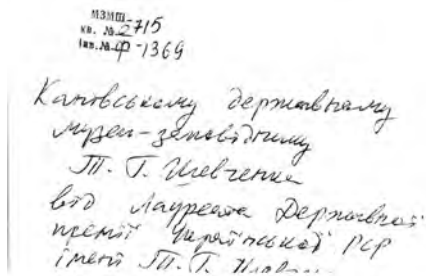 МЗМШ
кв. № 2715
Інв. № Ф-1369
Канівському державному
музею-заповіднику
Т. Г. Шевченка
від Лауреата Державної
премії Української РСР
імені Т. Г.